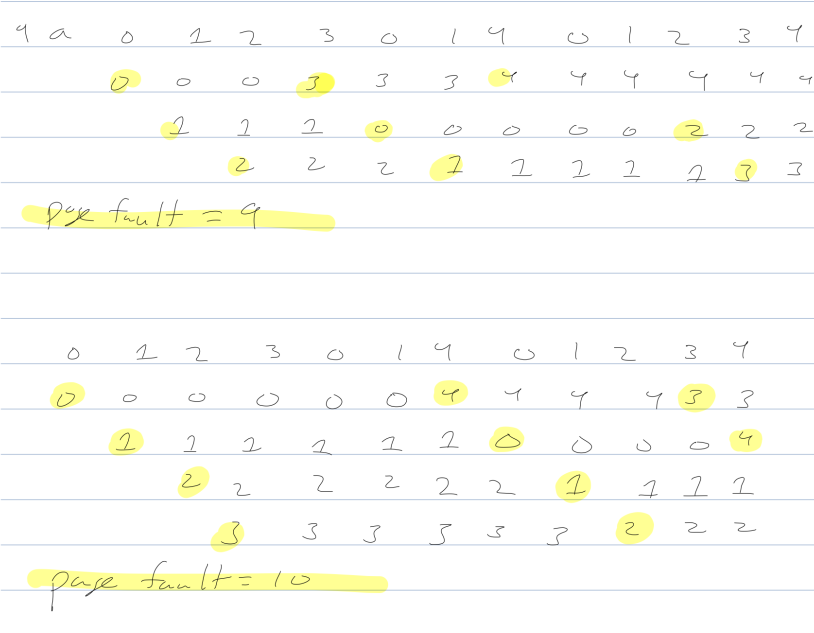 4 a 0 1 2 3 0 1 4 0 1 2 3 4
0 0 0 3 3 3 4 4 4 4 4 4
1 1 1 0 0 0 0 0 2 2 2
2 2 2 1 1 1 1 1 3 3
page fault = 9
0 1 2 3 0 1 4 0 1 2 3 4
0 0 0 0 0 0 4 4 4 4 3 3
1 1 1 1 1 1 0 0 0 0 4
2 2 2 2 2 2 1 1 1 1
3 3 3 3 3 3 2 2 2
page fault = 10